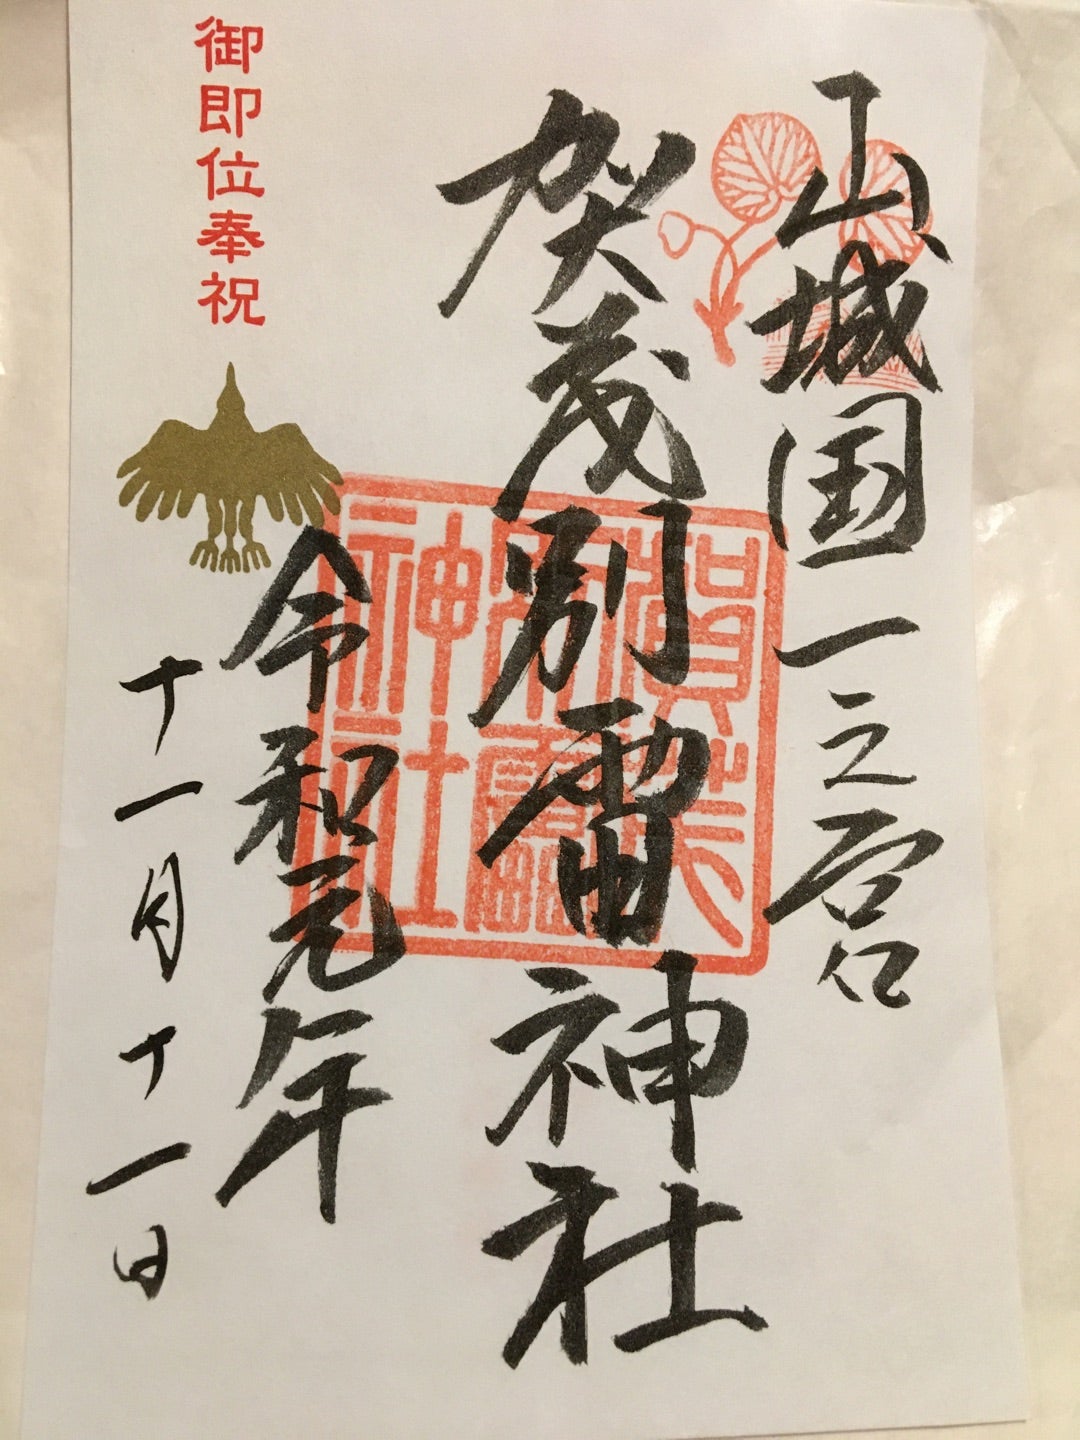 山城国一之宮
賀茂別雷神社
令和元年
十一月十一日
御即位奉祝
賀茂別雷神社